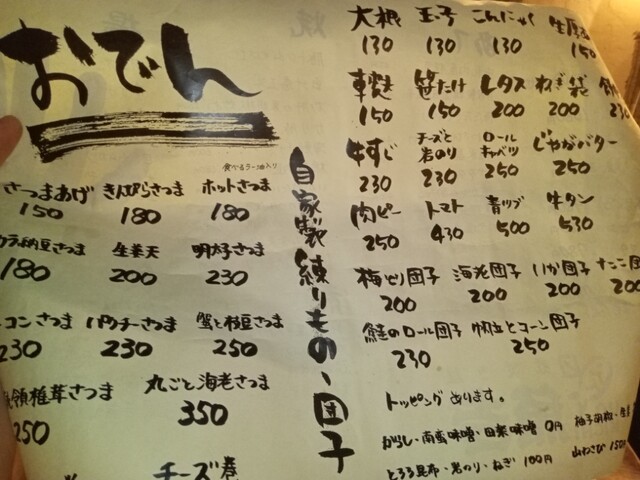 おでん
大根 玉子 こんにゃく
130 130 130 150
車麩 笹たけ レタス ねぎ袋
150 150 200 200
牛すじ チーズと岩のり ロールキャベツ じゃがバター
230 230 250 250
肉ピー トマト 青ツブ 牛タン
250 430 500 530
自家製練りもの、団子
食べるラー油入り
さつまあげ きんぴらさつま ホットさつま
150 180 180
納豆さつま 生姜天 明太子さつま
180 200 230
コンさつま パクチーさつま 蟹と枝豆さつま
230 230 250
椎茸さつま 丸ごと海老さつま
250 350
チーズ巻
梅しそ団子 海老団子 いか団子
200 200 200 200
鮭のロール団子 帆立とコーン団子
230 250
トッピングあります。
からし・南蛮味噌・田楽味噌 0円 柚子胡椒・生姜
とろろ昆布・岩のり・ねぎ 100円 山わさび 150